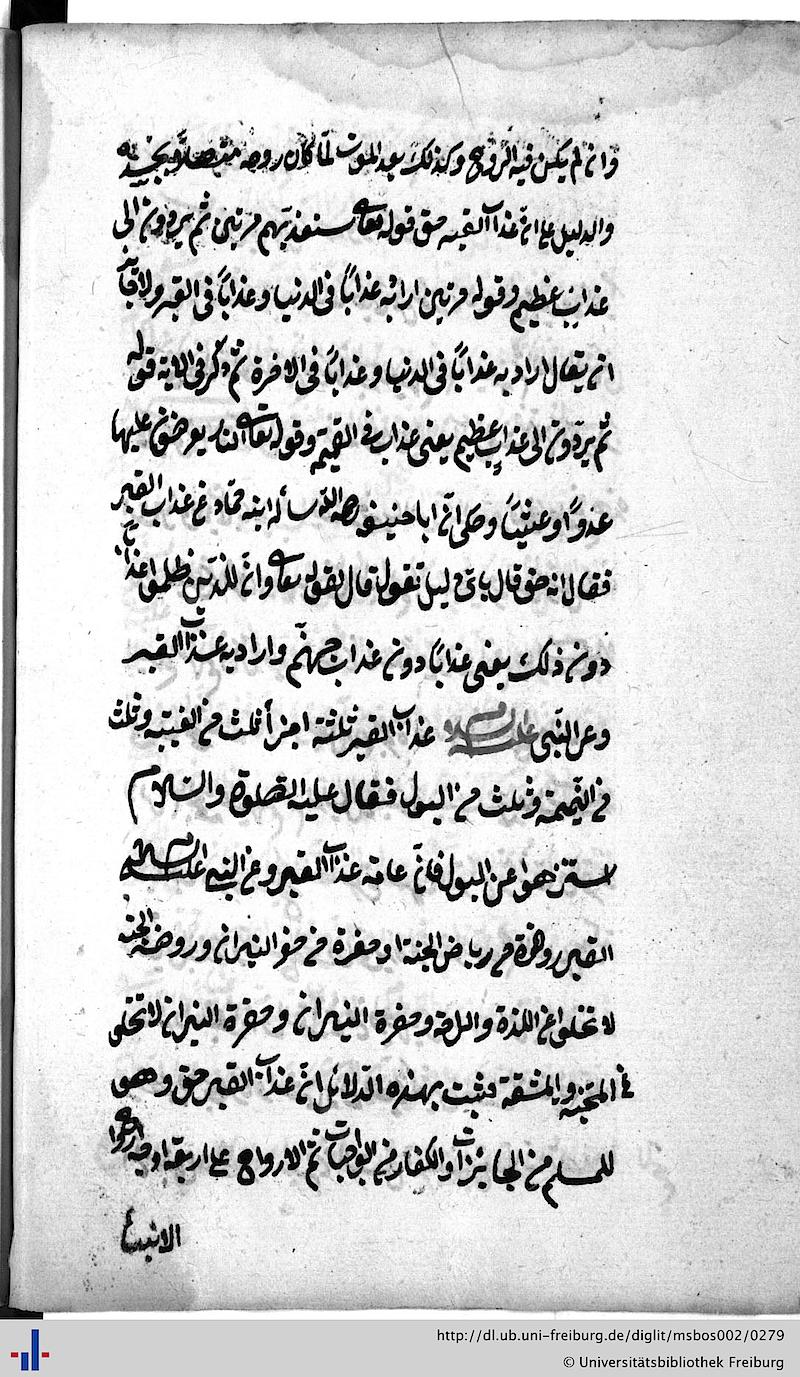 وان لم يكن فيه الروح وكذلك بعد الموت لما كان روحه متصلا بجسده
والدليل على ان عذاب القبر حق قوله تعالى سنعذبهم مرتين ثم يردون الى
عذاب عظيم وقوله مرتين اراد به عذابًا فى الدنيا وعذابًا فى القبر ولا
ان يقال اراد به عذابًا فى الدنيا وعذابًا فى الاخرة ثم ذكر فى الاية قوله
ثم يردون الى عذاب عظيم يعنى عذاب فى القيمة وقوله تعالى النار يعرضون عليها
غدوًا وعشيًا وحكى ان ابا حنيفه رحمه الله سأله ابنه حماد عن عذاب القبر
فقال انه حق قال باى دليل تقول قال بقوله تعالى وان للذين ظلموا عذابا
دون ذلك يعنى عذابًا دون عذاب جهنم واراد به عذاب القبر
وعن النبى عليه السلام عذاب القبر ثلثة اجزأ ثلث من الغيبه وثلث
من النميمة وثلث من البول فقال عليه الصلوة والسلام
استنزهوا عن البول فان عامة عذاب القبر وعن النبى عليه السلام
القبر روضة من رياض الجنة او حفرة من حفر النيران وروضة الجنة
لا تخلوا عن اللذة والراحة وحفرة النيران وحفرة النيران لا تخلو
من المحنة والمشقة فثبت بهذه الدلائل ان عذاب القبر حق وهو
للمسلم من الجايزات والكفار من الواجبات ثم الارواح على اربعة اوجه ارواح
الانبياء
http://dl.ub.uni-freiburg.de/diglit/msbos002/0279
© Universitätsbibliothek Freiburg